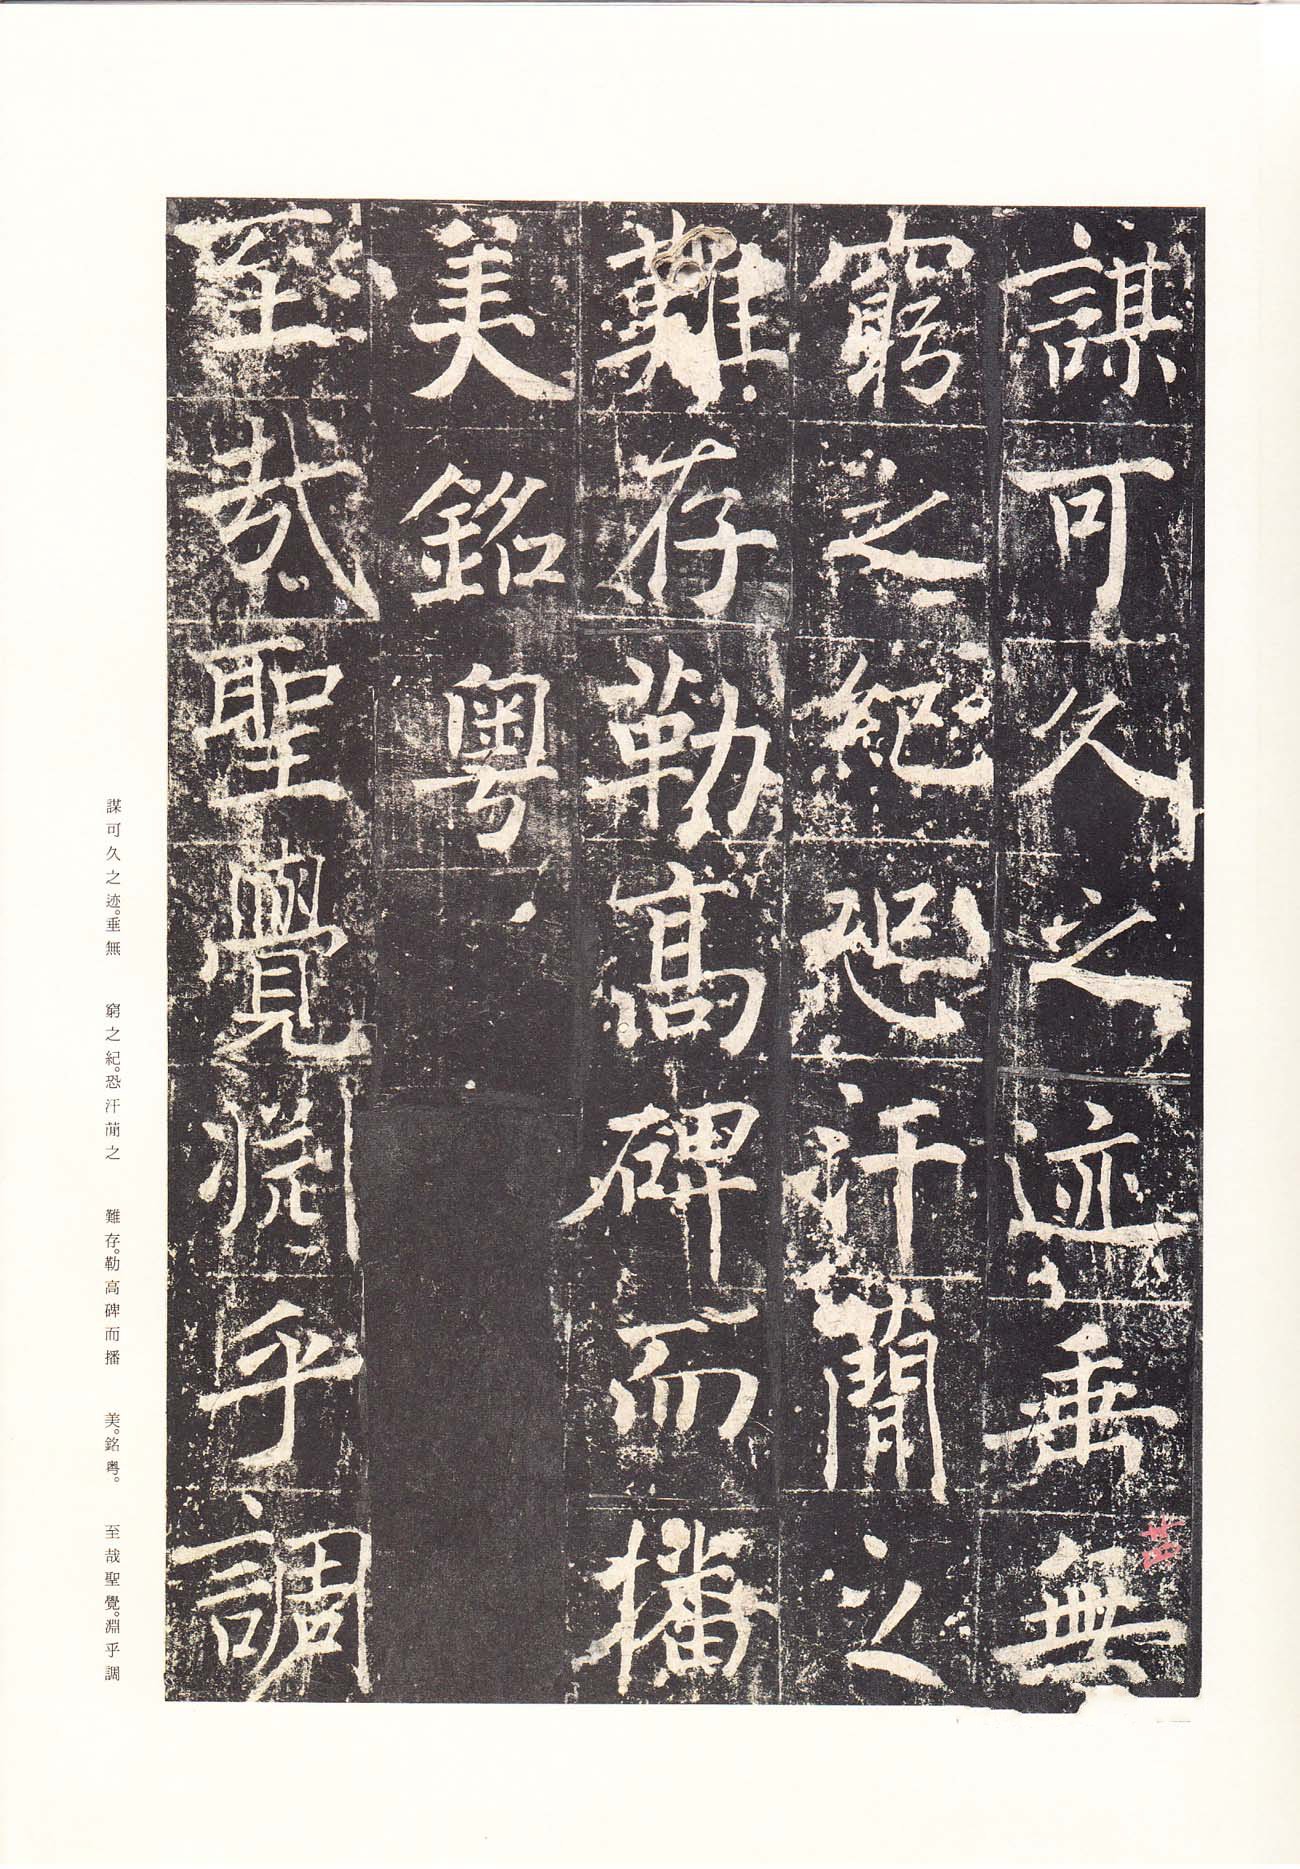 謀可久之迹垂無
窮之紀恐汗簡之
難存勒高碑而播
美銘粤
至哉聖覺淵乎調
謀可久之迹。垂無　窮之紀。恐汗蕳之　難存。勒高碑而播　美。銘粤。　至哉聖覺。淵乎調